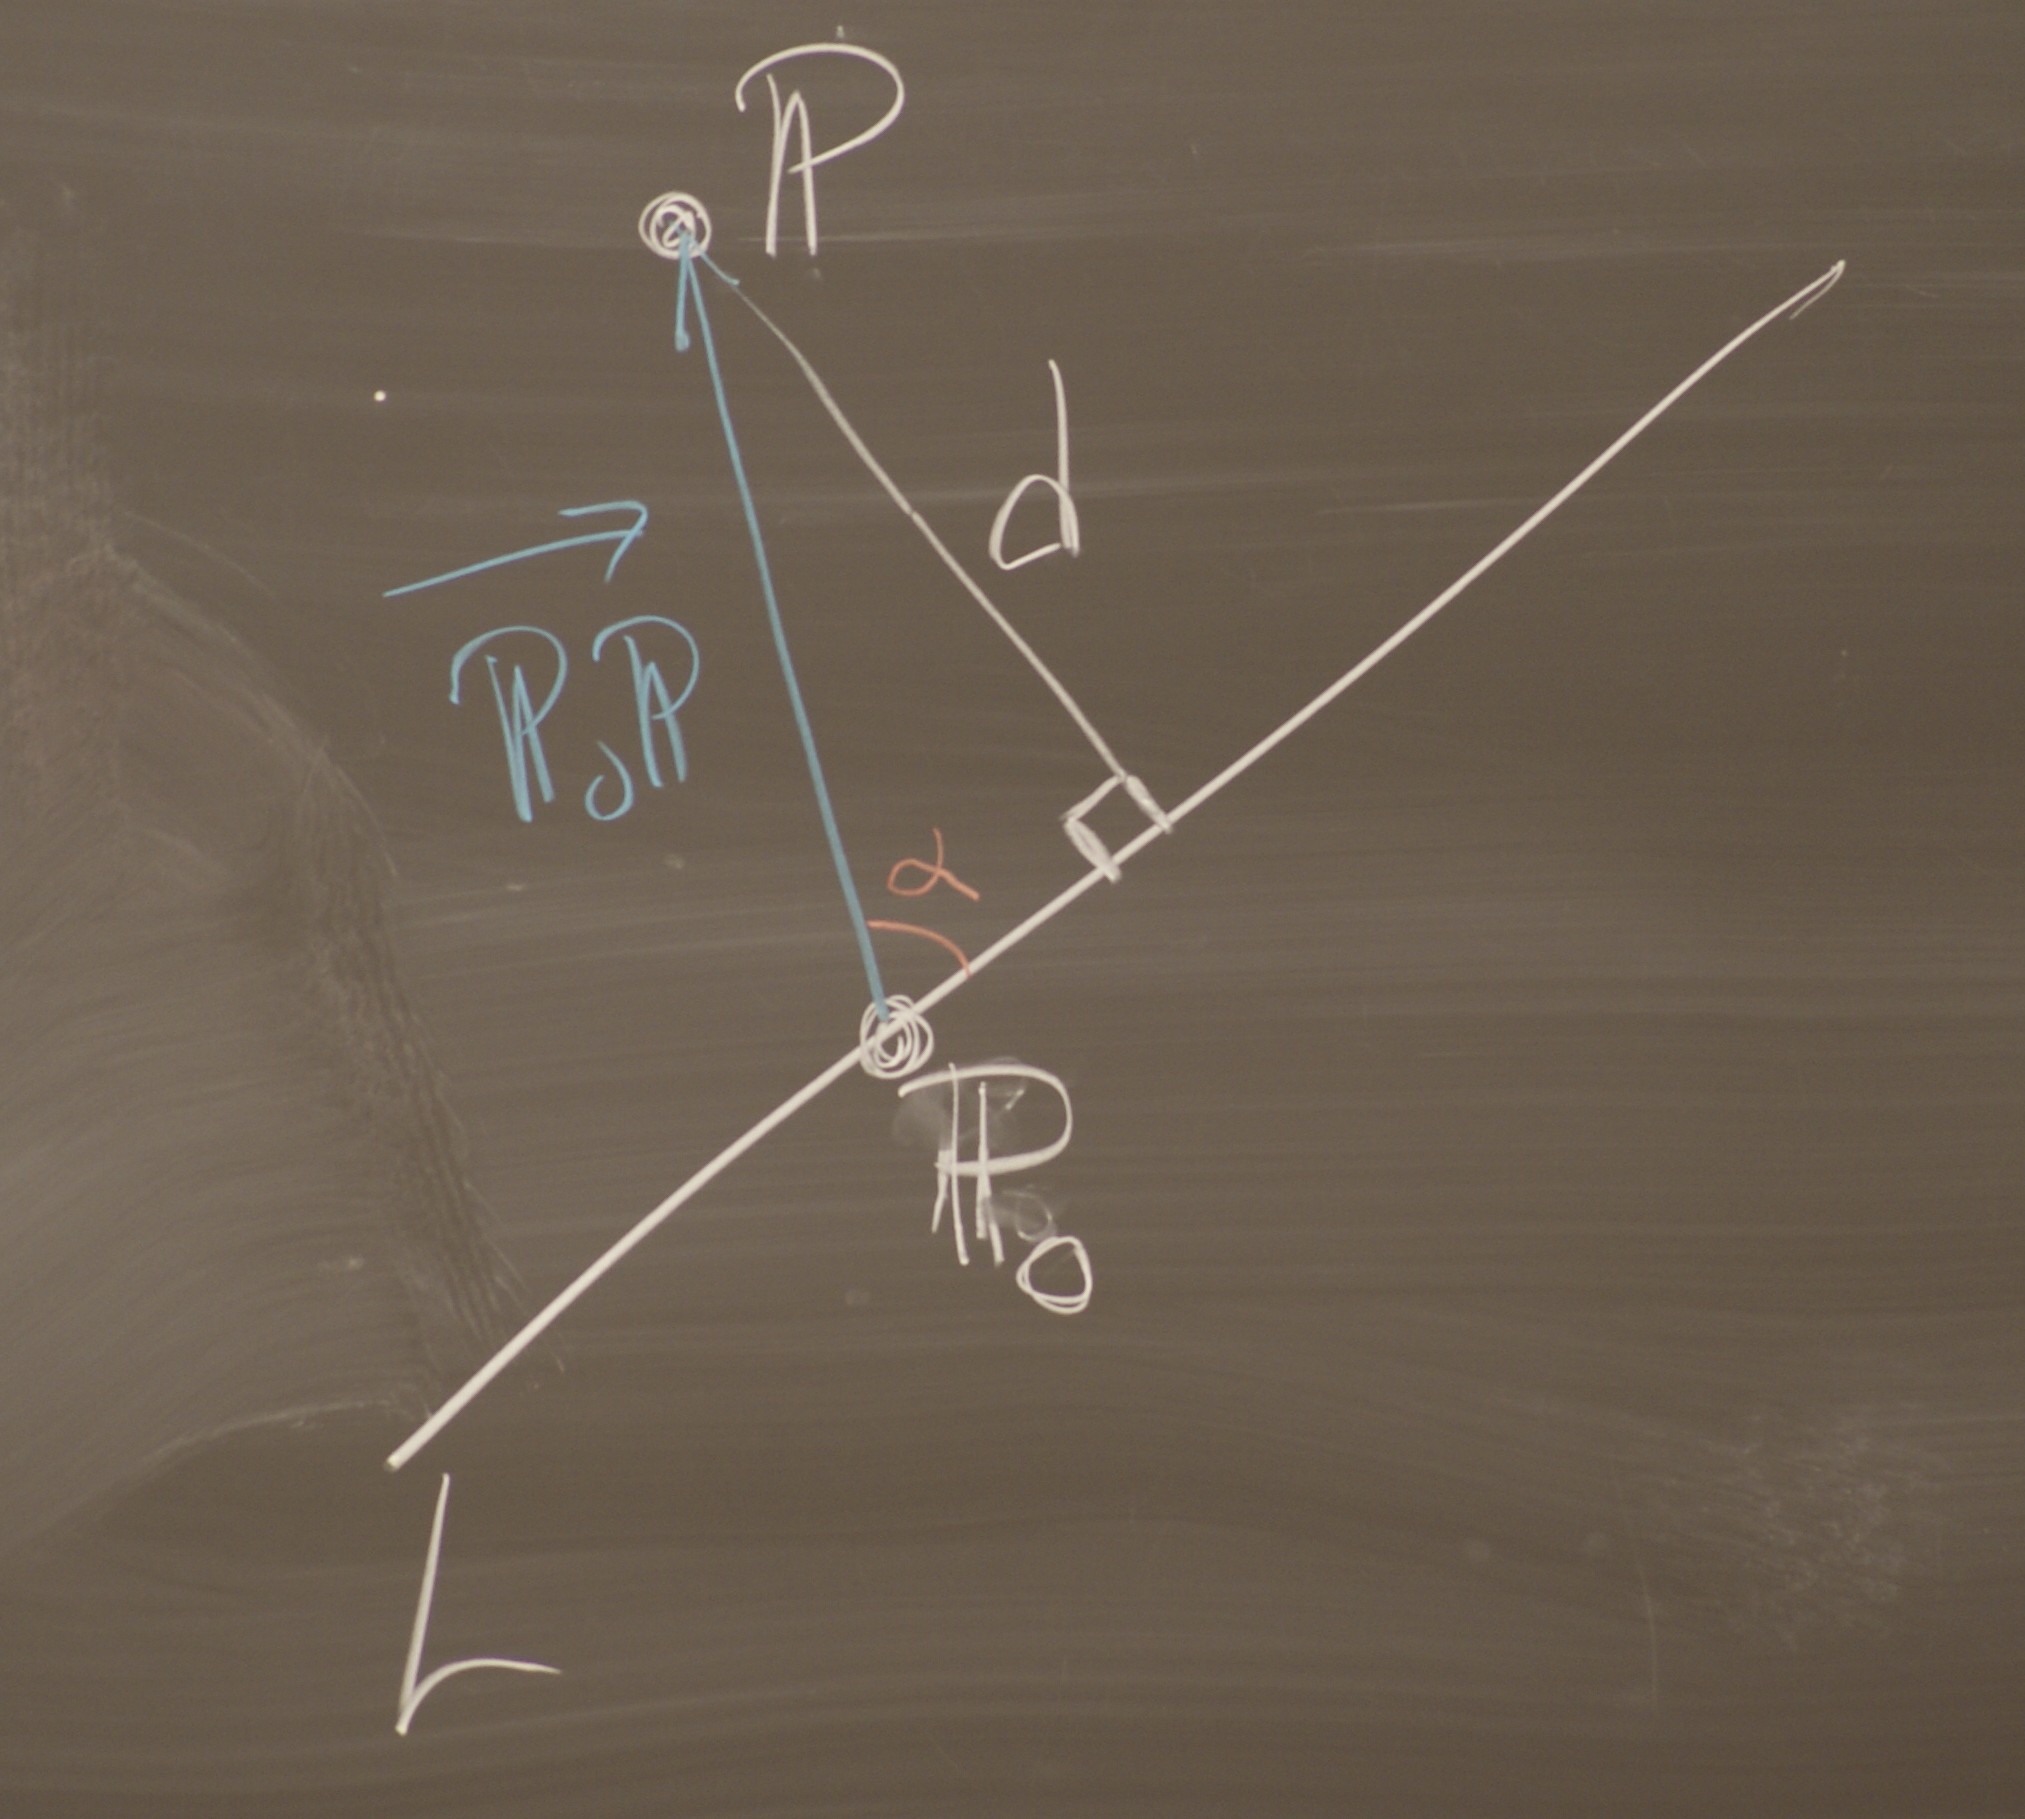 ℙ
d
ℙ₀ℙ
α
ℙ₀
L